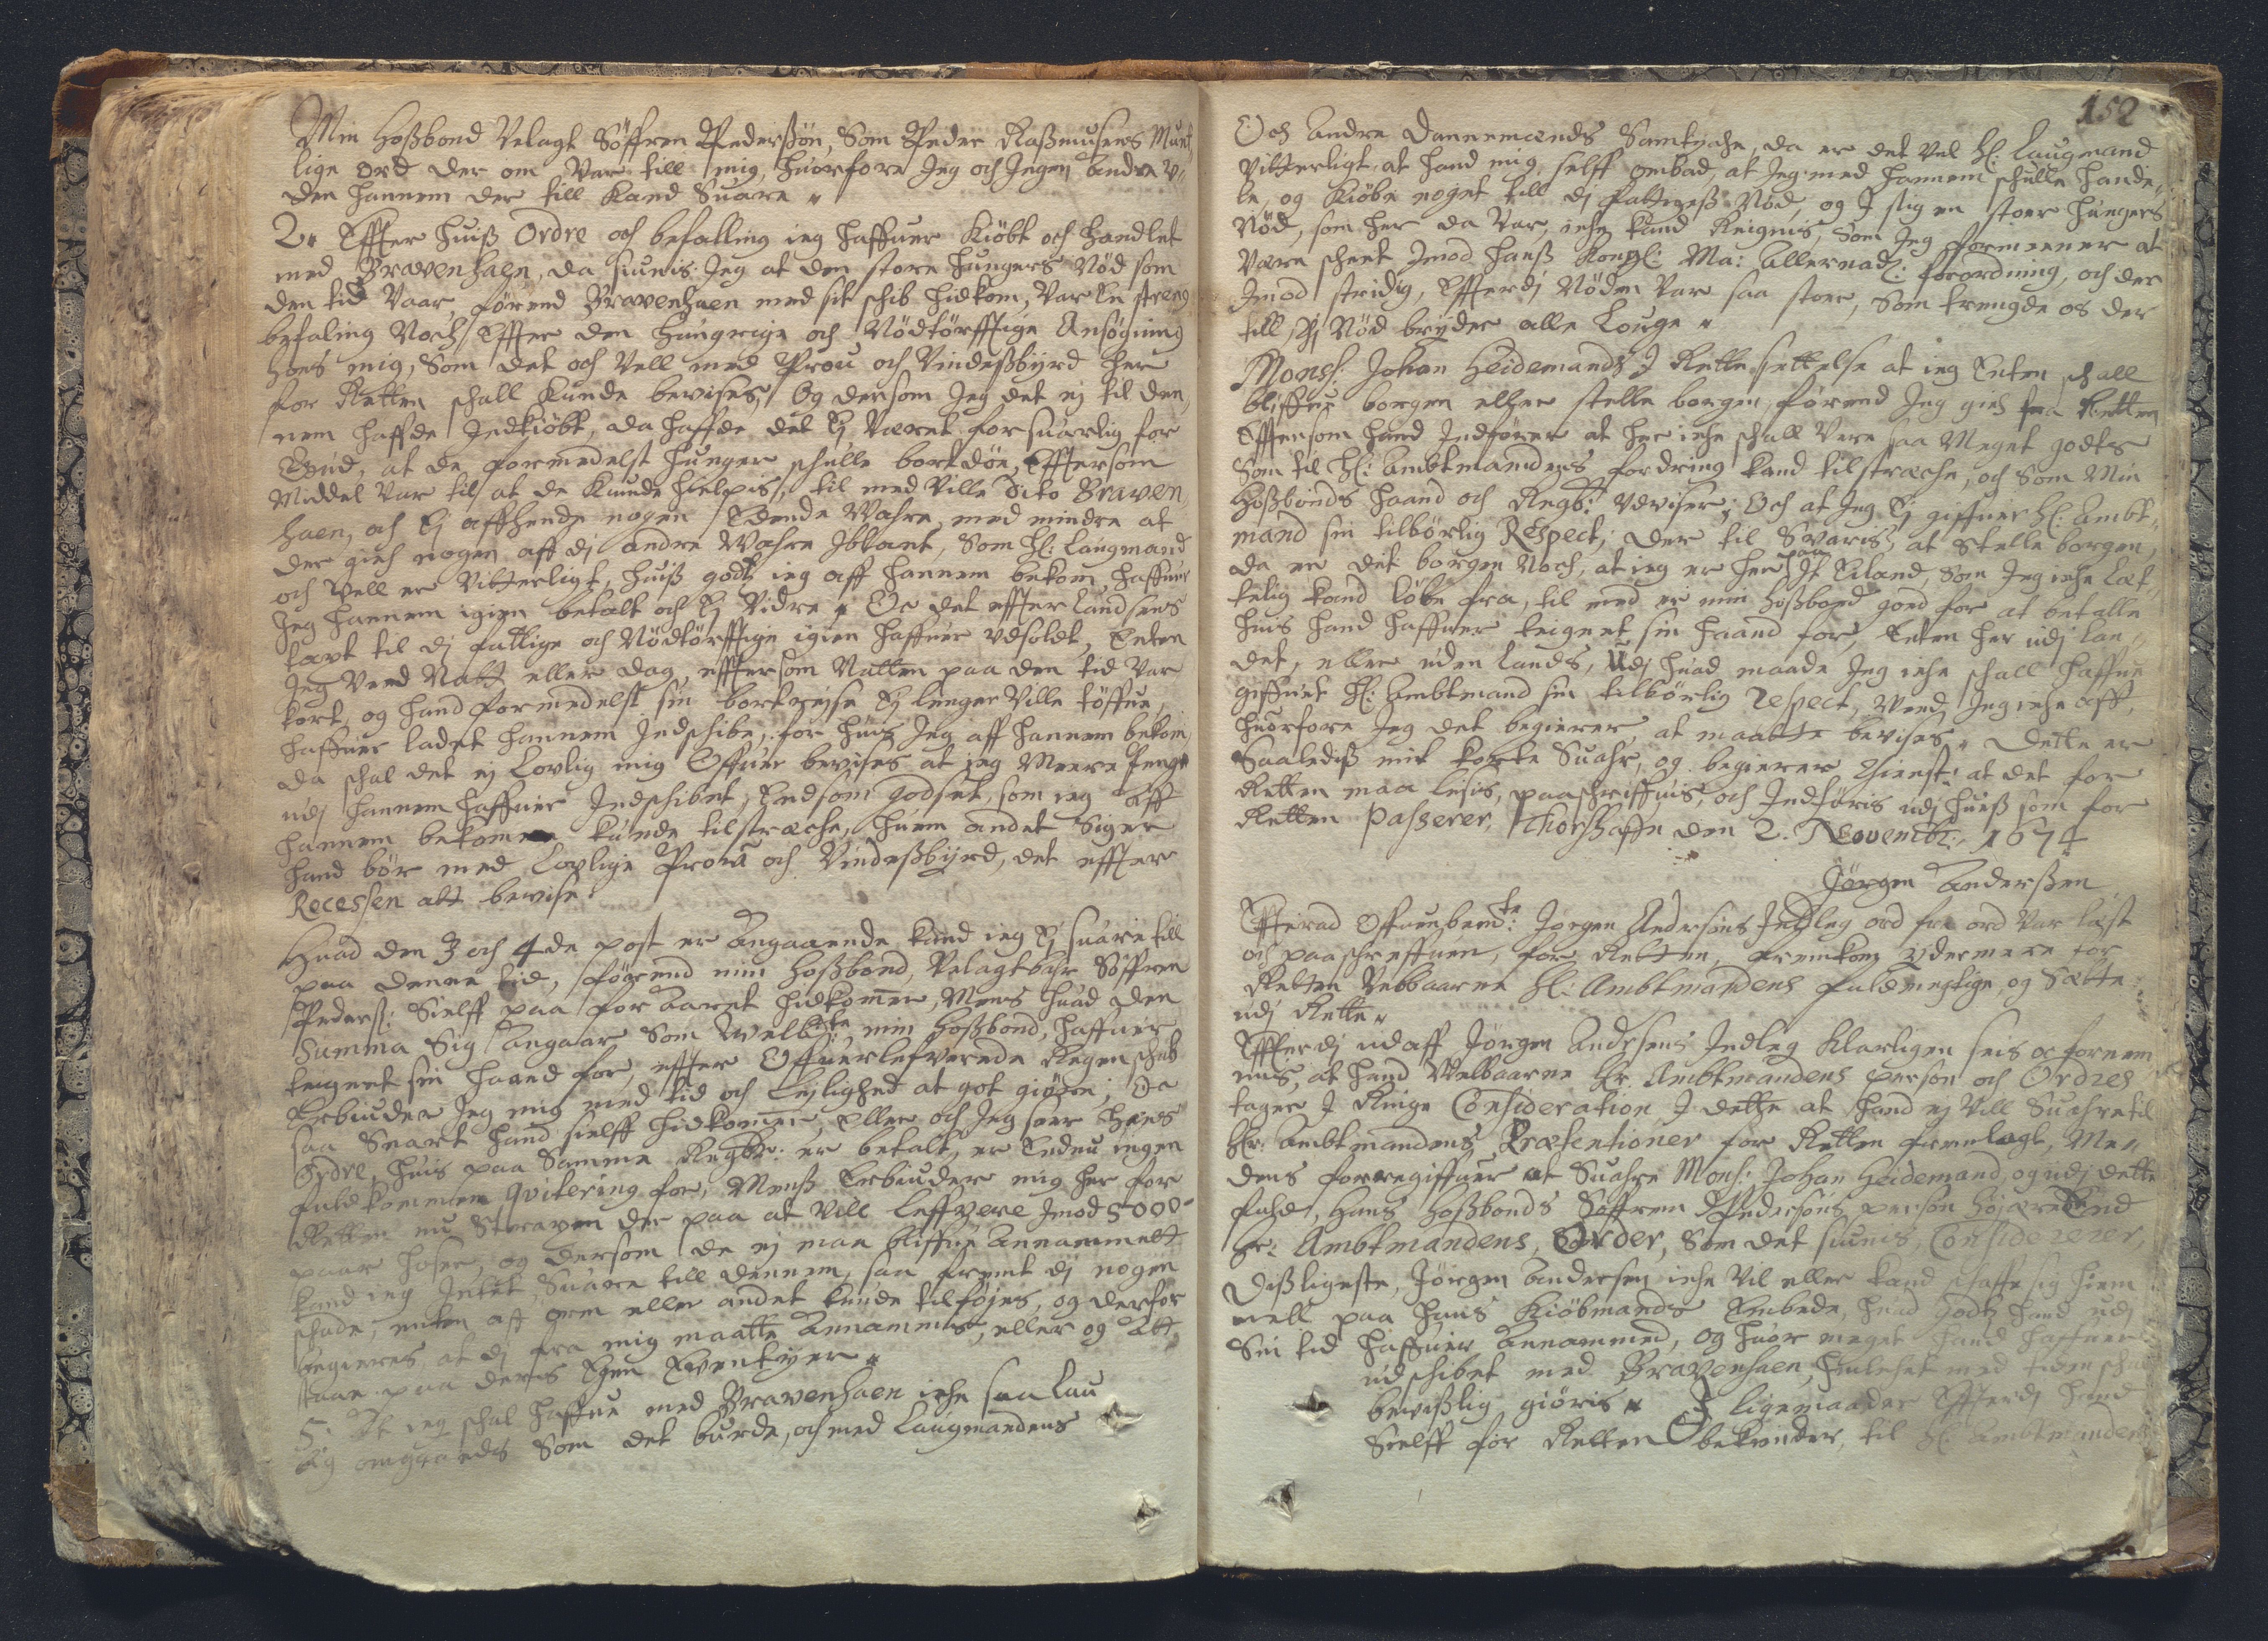 Min Hoßbond Velagt Söffren Pederßön, Som Peder Raßmusens Munt,
lige ord der om Var till mig, huorfore Jeg och Ingen andre v,
den hannem der till kand Suare
2. Effter huiß Ordre och befalling ieg haffuer kiöbt och handlet
med Bravenhaen, da siunis Jeg at den store hungers Nöd som
den tid Vaar, förend Bravenhaen med sit schib hidkom, Var En streng
befaling Noch Effter den hungrige och Nödtörfftige Ansögning
hoes mig, Som det och Vell med Prou och Vindeßbyrd her
for Retten schall kunde bevises, Og dersom Jeg det ej til den,
nem haffde Indkiöbt, da haffde det Ej Været forsuarlig for
Gud, at de formedelst hunger schulle bortdöe, Effter som
Middel Var til at de kunde hielpis, til med Ville dito Braven,
haen, och Ej affhende nogen Edende Wahre, med mindre at
der gich nogen aff dj andre Wahre Iblant, Som Hl: Laugmand
och Vell er Vitterligt, huiß godtz ieg aff hannem bekom haffuer
Jeg hannem igien betalt och Ej Vidre. Oc det effter Landsens
taxt til dj fattige och Nödtörfftige igien haffuer udsoldt, Enten
Jeg Veed Natt eller dag, effter som Natten paa den tid Var
kort, og hand formedelst sin bortreyse Ej lenger Ville töffue,
haffuer ladet hannem Indschibe, for huis Jeg aff hannem bekom,
da schal det ej Lovlig mig Offuer bevises at ieg Meere Penge
udj hannem haffuer Indschibet, End som godset, som ieg aff
hannem bekomen kunde tilstræche, huem andet Siger
hand bör med Lovlige Prou och Vindeßbyrd, det effter
Recessen att bevise.
Huad den 3 och 4de post er Angaaende, kand ieg Ej suare till
paa denne tid, förend min Hoßbond, Velagtbahr Söffren
Pederß: Sielff paa for aaret hidkommer, Mens huad den
Summa Sig Angaar Som Welb:te min Hoßbond, haffuer
teignet sin haand for, effter Offuerlefverede Regenschab
Erbiuder Jeg mig med tid och Leylighed at got giöre, Oc
saa Snart hand sielff hidkommer, Eller och Jeg seer Hans
Ordre, huis paa Samme Regb: er betalt, er Endnu ingen
fuldkommen Quitering for, Menß Erbiuder mig her for
Retten nu Straxen der paa at Vill Leffvere Imod 5000
paar hoser, og dersom de ej maa bliffue Annammett
kand ieg Intet Suare till dennem, saa fremt dj nogen
schade, enten aff orm eller andet kunde tilföjes, og derfor
begieres, at dj fra mig maatte Annammis, eller og att
staae paa deris Egen Eventyer.
5. At ieg schal haffue med Bravenhaen iche saa Lau
lig omgaaeds Som det burde, och med Laugmandens
152
Och andre Dannemænds Samtyche, da er det Vel Hl: Laugmand
Vitterligt, at hand mig selff ombad, at Jeg med hannem schulle hande,
le, og kiöbe noget till dj fattigeß Nöd, og I slig en stoer hungers
Nöd, som her da Var, iche kand Reignis, Som Jeg formeener at
Være scheet Imod Hanß Kongl: Ma: Allernad: forordning, och der
Imod stridig, Effterdj Nöden Var saa stoer, Som trengde os der
till, thj Nöd bryder alle Louge.
Monss: Johan Heidemands I Rette settelse at ieg Enten schall
bliffue borgen eller stelle borgen, förend Jeg gich fra Retten
Effter som hand Indförer at her iche schall Vere saa Meget godts
Som til Hl: Ambtmandens fordring kand tilstræche, och Som Min
Hoßbonds haand och Regb: Udviser, Och at Jeg Ej giffuer Hl: Ambt,
mand sin tilbörlig Respect, Der til Svaris, at Stelle borgen,
da er det borgen Noch, at ieg er her paa It Eiland, Som Jeg iche Let,
telig kand löbe fra, til med er min Hoßbond goed for at betalle
huis hand haffuer teignet sin haand for, Enten her udj Lan,
det, eller uden Lands, Udj huad maade Jeg iche schall haffue
giffuet Hl: Ambtmand sin tilbörlig Respect, Veed Jeg iche aff,
huorfore Jeg det begierer, at maatte bevises. Dette er
Saaledis mit korte Suahr, og begierer thienst: at det for
Retten maa lesis, paaschriffuis, och Indföris udj hueß som for
Retten Passerer, Thorßhaffn den 2. Novemb: 1674
Jörgen Anderßen
Effterad Offuenbem:te Jorgen Andersöns Indleg ord fra ord Var læst
och paaschreffuen, for Retten, fremkom ydermere for
Retten Velbaarne Hl: Ambtmandens fuldmegtige, og Sætte
udj Rette.
Effterdj udaff Jörgen Andersens Indleg klarligen seis oc fornem
mis, at hand Welbaarne Hr. Ambtmandens person och Ordres
tager I Ringe Consideration I dette at hand ej Vill Suahre til
Hr: Ambtmandens Præsentioner for Retten fremlagt, Me,
dens forregiffuer at Suahre Mons: Johan Heidemand, og udj dette
fald, hans hoßbonds Söffren Pedersöns person höjere End
Hr: Ambtmandens, Order, Som det siunis, Considererer,
Dißligeste, Jörgen Andersen iche Vil eller kand schaffe sig hiem
mell paa hans Kiöbmands Embede, huad godtz hand udj
Sin tid haffuer Annammed, og huor meget hand haffuer
udschibet med Bravenhaen, huilchet med tiden schal
bevißlig giöris. I ligemaader Effterdj hand
Sielff for Retten bekiender, til Hl: Ambtmandens